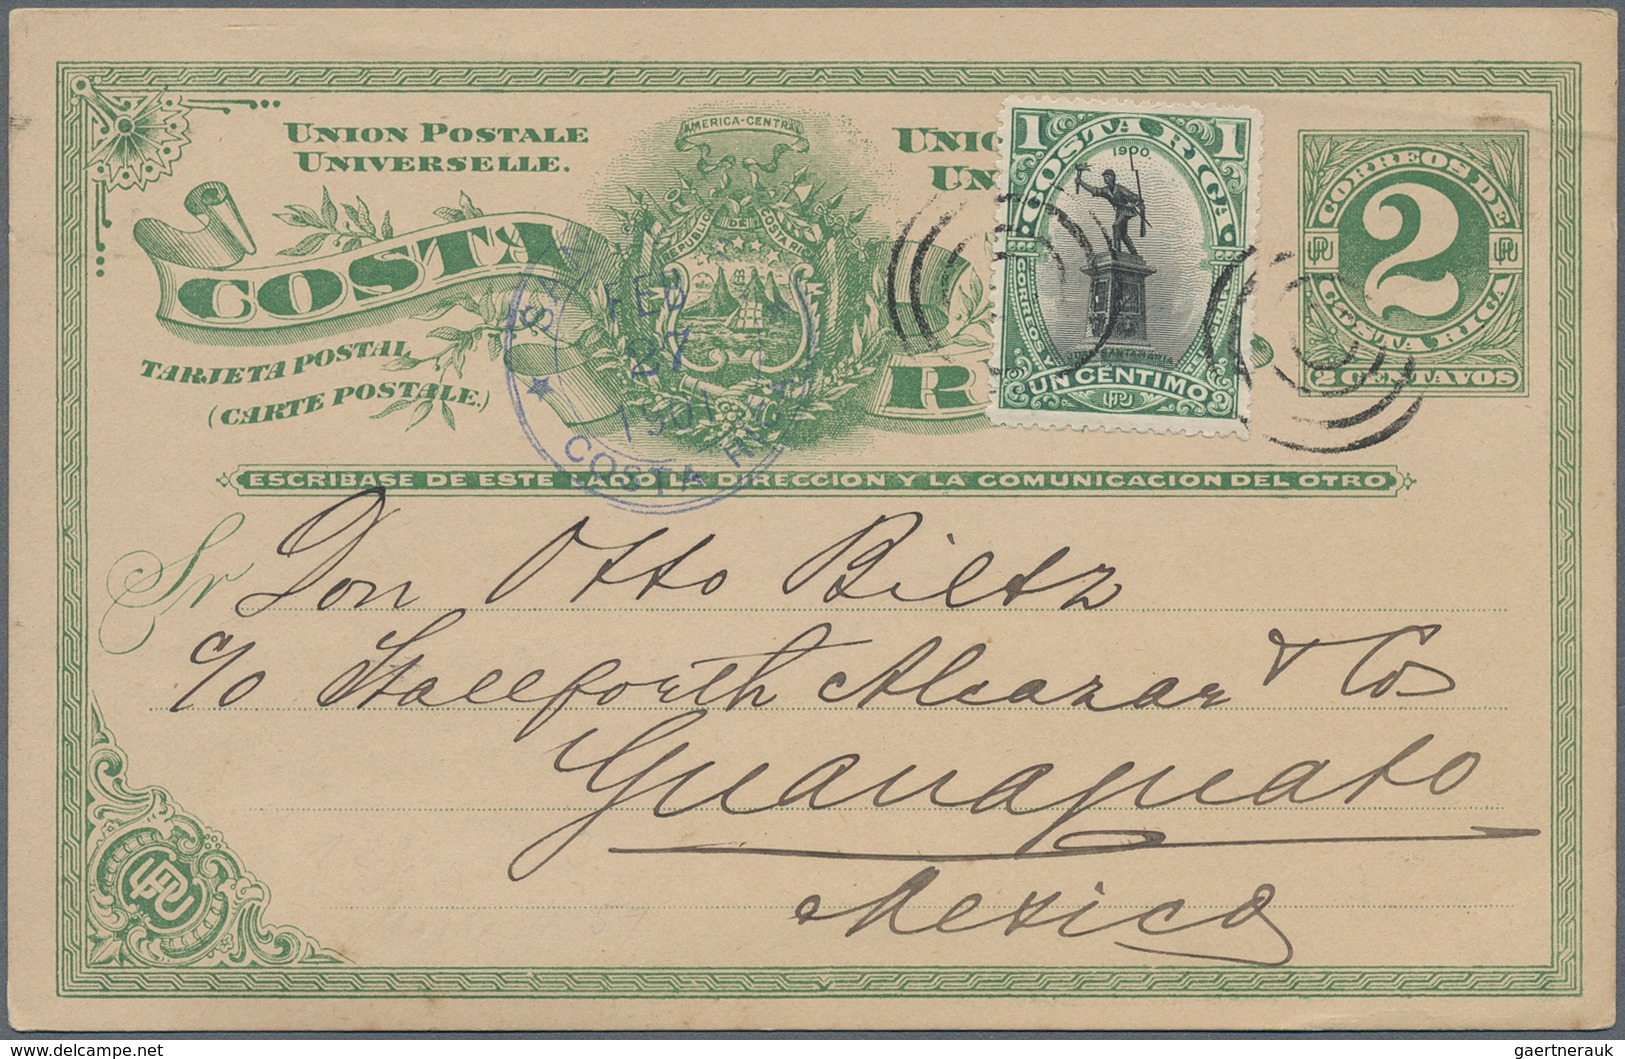 UNION POSTALE
UNIVERSELLE.
AMERICA-CENTRAL
REPUBLICA DE COSTA RICA
COSTA
TARJETA POSTAL
(CARTE POSTALE.)
1 COSTA RICA 1
1900
JUAN SANTAMARIA
UN CENTIMO
UPU
CORREOS DE
2
COSTA RICA
2 CENTAVOS
SAN
FEB
27
1901
COSTA RICA
ESCRIBASE DE ESTE LADO LA DIRECCION Y LA COMUNICACION DEL OTRO
Sr Don Otto Biltz
c/o Stallforth Alcazar & Co
Guanajuato
Mexico
59
delcampe.net
gaertnerauk